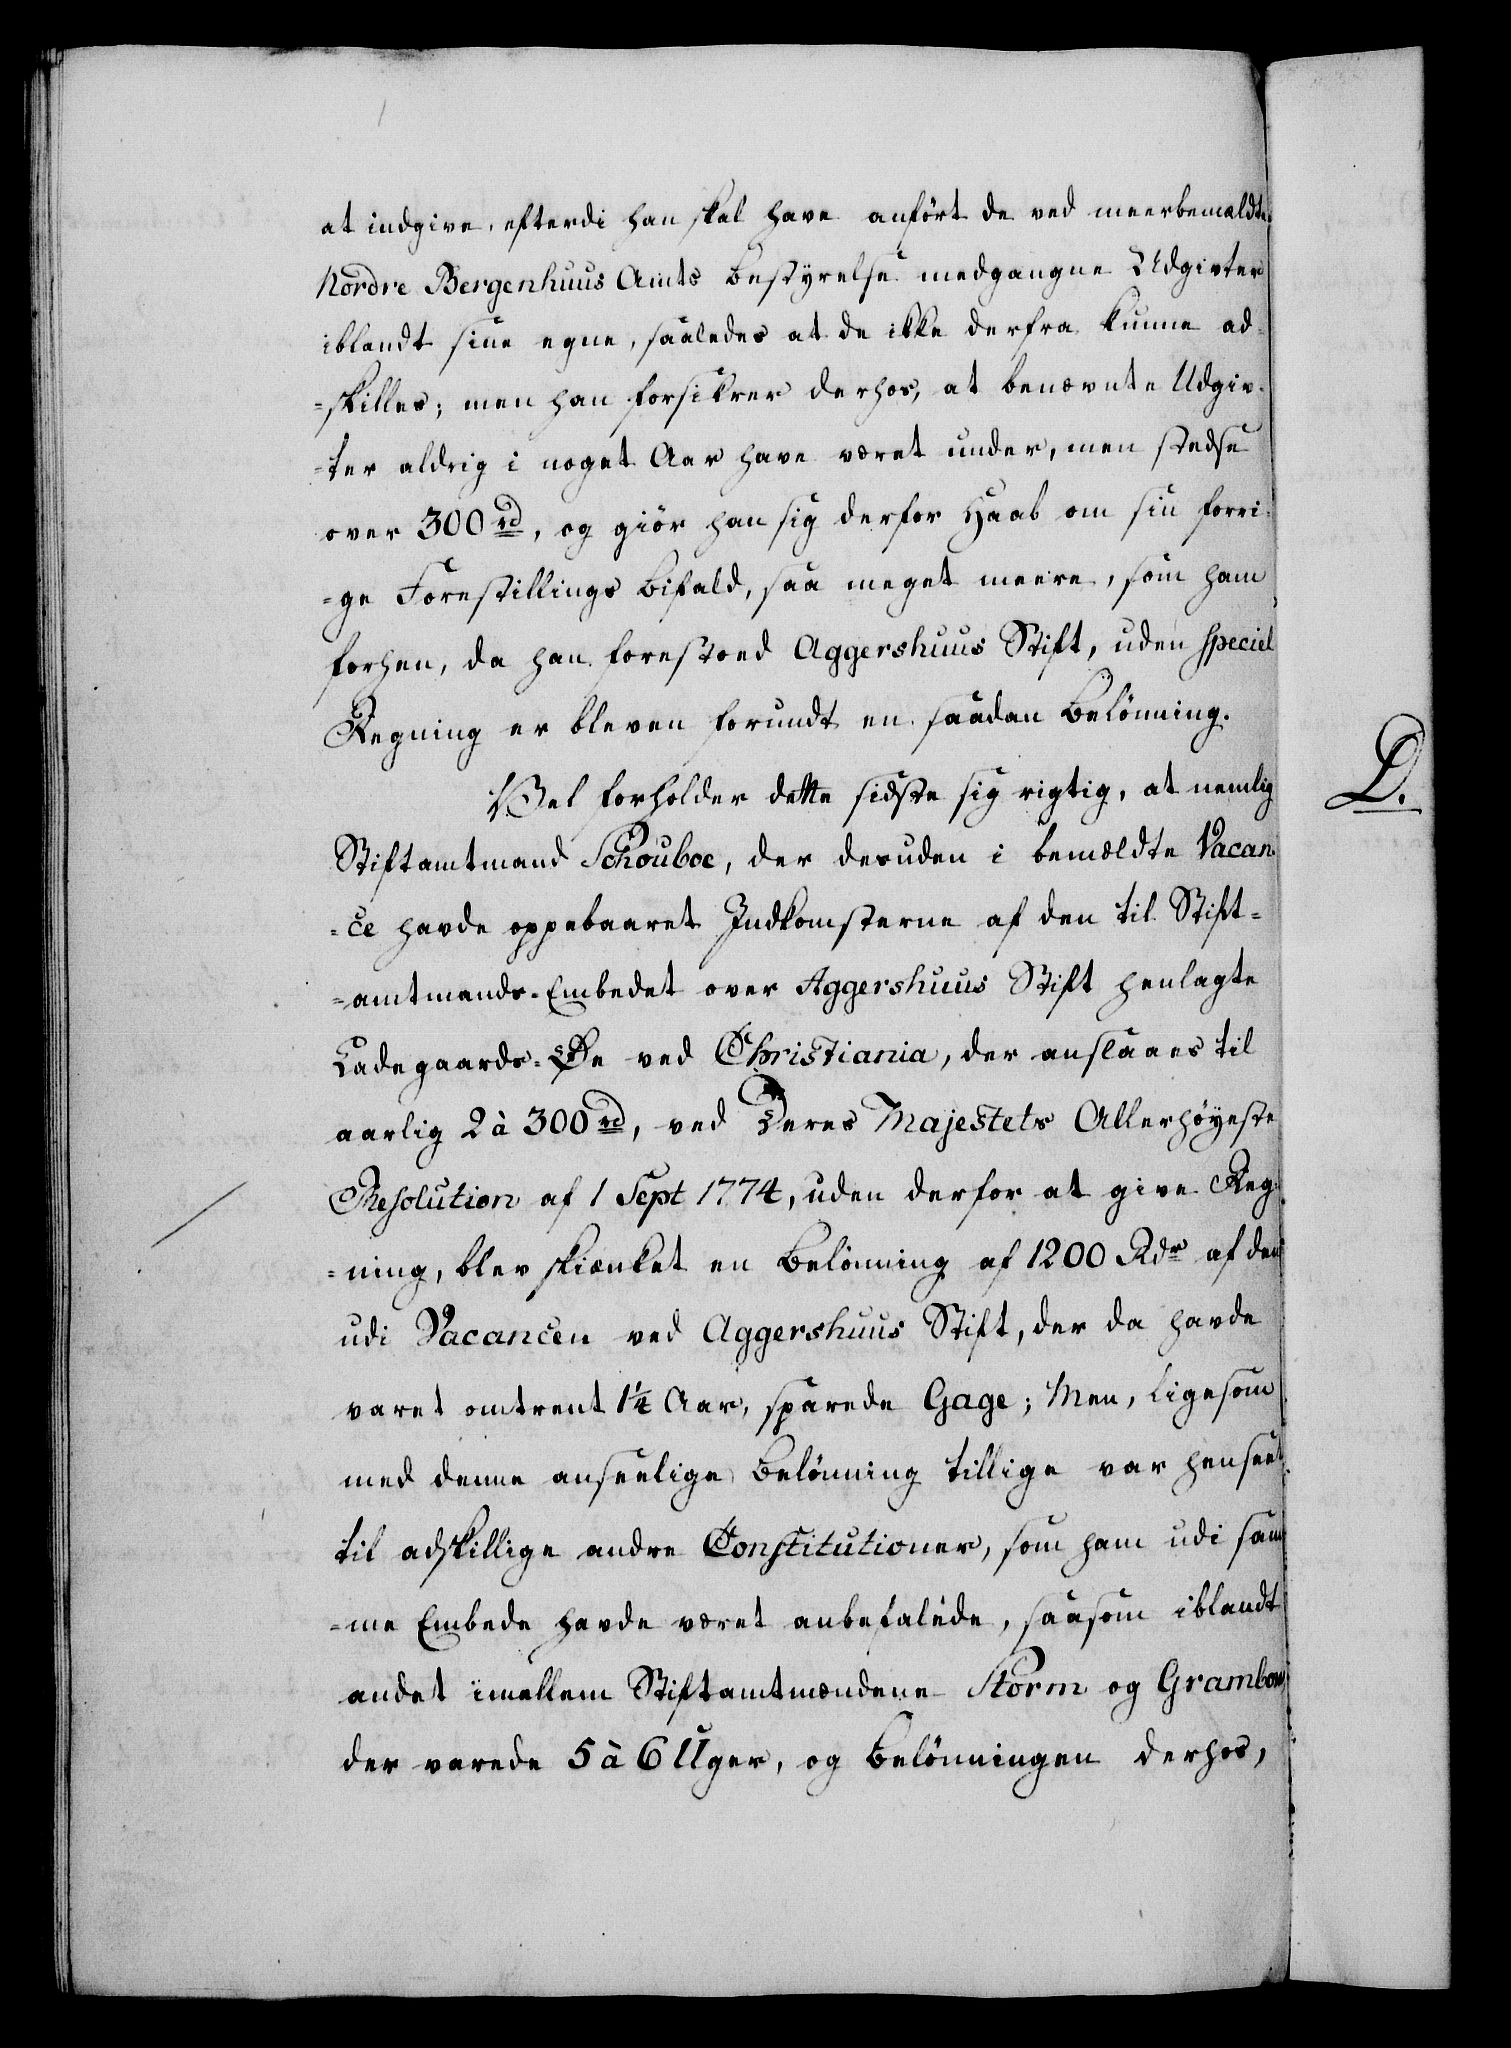 at indgive, efterdi han skal have anført de ved meerbemældte
Nordre Bergenhuus Amts Bestyrelse medgangne Udgivter
iblandt sine egne, saaledes at de ikke derfra kunne ad-
=skilles; men han forsikrer derhos, at benævnte Udgiv-
=ter aldrig i noget Aar have været under, men stedse
over 300 rd, og giör han sig derfor Haab om sin forri-
=ge Forestillings Bifald, saa meget meere, som ham
forhen, da han forestoed Aggershuus Stift, uden speciel
Regning er bleven forundt en saadan Belönning.
Vel forholder dette sidste sig rigtig, at nemlig
Stiftamtmand Schouboe, der desuden i bemældte Vacan-
=ce havde oppebaaret Indkomsterne af den til Stift-
=amtmands-Embedet over Aggershuus Stift henlagte
Ladegaards-Øe ved Christiania, der anslaaes til
aarlig 2 à 300 rd, ved Deres Majestets Allerhöyeste
Resolution af 1 Sept 1774, uden derfor at give Reg-
=ning, blev skiænket en Belönning af 1200 Rdr af den
udi Vacancen ved Aggershuus Stift, der da havde
varet omtrent 1¼ Aar, sparede Gage; Men, ligesom
med denne anseelige Belönning tillige var henseet
til adskillige andre Constitutioner, som ham udi sam-
=me Embede havde været anbefalede, saasom iblandt
andet imellem Stiftamtmændene Storm og Grambow,
der varede 5 à 6 Uger, og Belönningen derhos,
D.